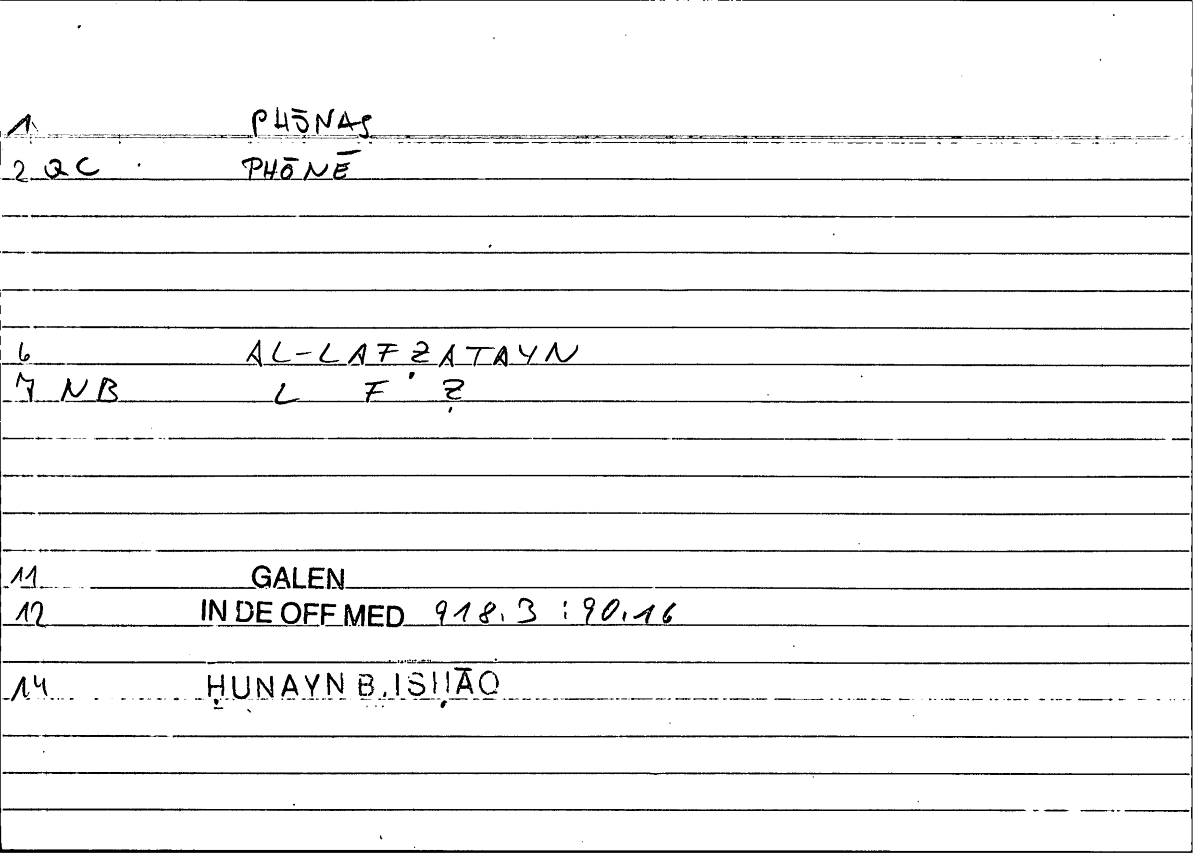 1 PHŌNAS
2 QC PHŌNĒ
6 AL-LAFẒATAYN
7 NB L F Ẓ
11 GALEN
12 IN DE OFF MED 918.3 : 90.16
14 ḤUNAYN B. ISḤĀQ